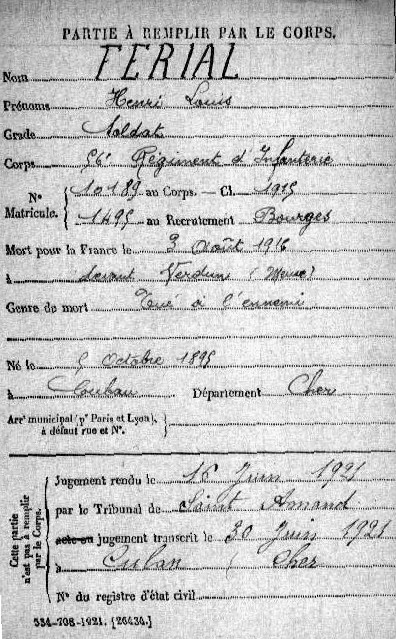 PARTIE À REMPLIR PAR LE CORPS.
Nom FERIAL
Prénoms Henri Louis
Grade Soldat
Corps 56e Régiment d'Infanterie
N° Matricule. 10189 au Corps. — Cl. 1915
1495 au Recrutement Bourges
Mort pour la France le 3 Août 1916
à devant Verdun (Meuse)
Genre de mort Tué à l'ennemi
Né le 5 Octobre 1895
à Département Cher
Arrt municipal (pr Paris et Lyon),
à défaut rue et N°.
Cette partie n'est pas à remplir par le Corps.
Jugement rendu le 16 Juin 1921
par le Tribunal de Saint Amand
acte ou jugement transcrit le 30 Juin 1921
à Culan Cher
N° du registre d'état civil
534-708-1921. [26434.]